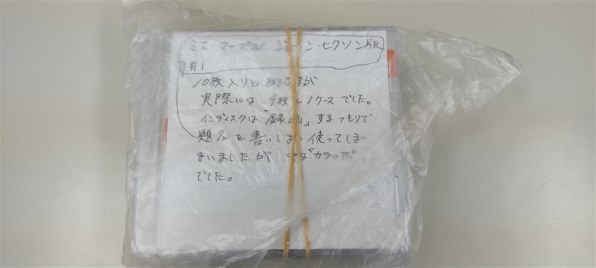 ミス・マープル ジョーン・ヒクソン版
#1
10枚入りと
実際には 9枚と1ケースでした。
インディスクは「録画」するつもりで
題名を書いてしまい使ってしま
まいましたが "カラッポ"
でした。